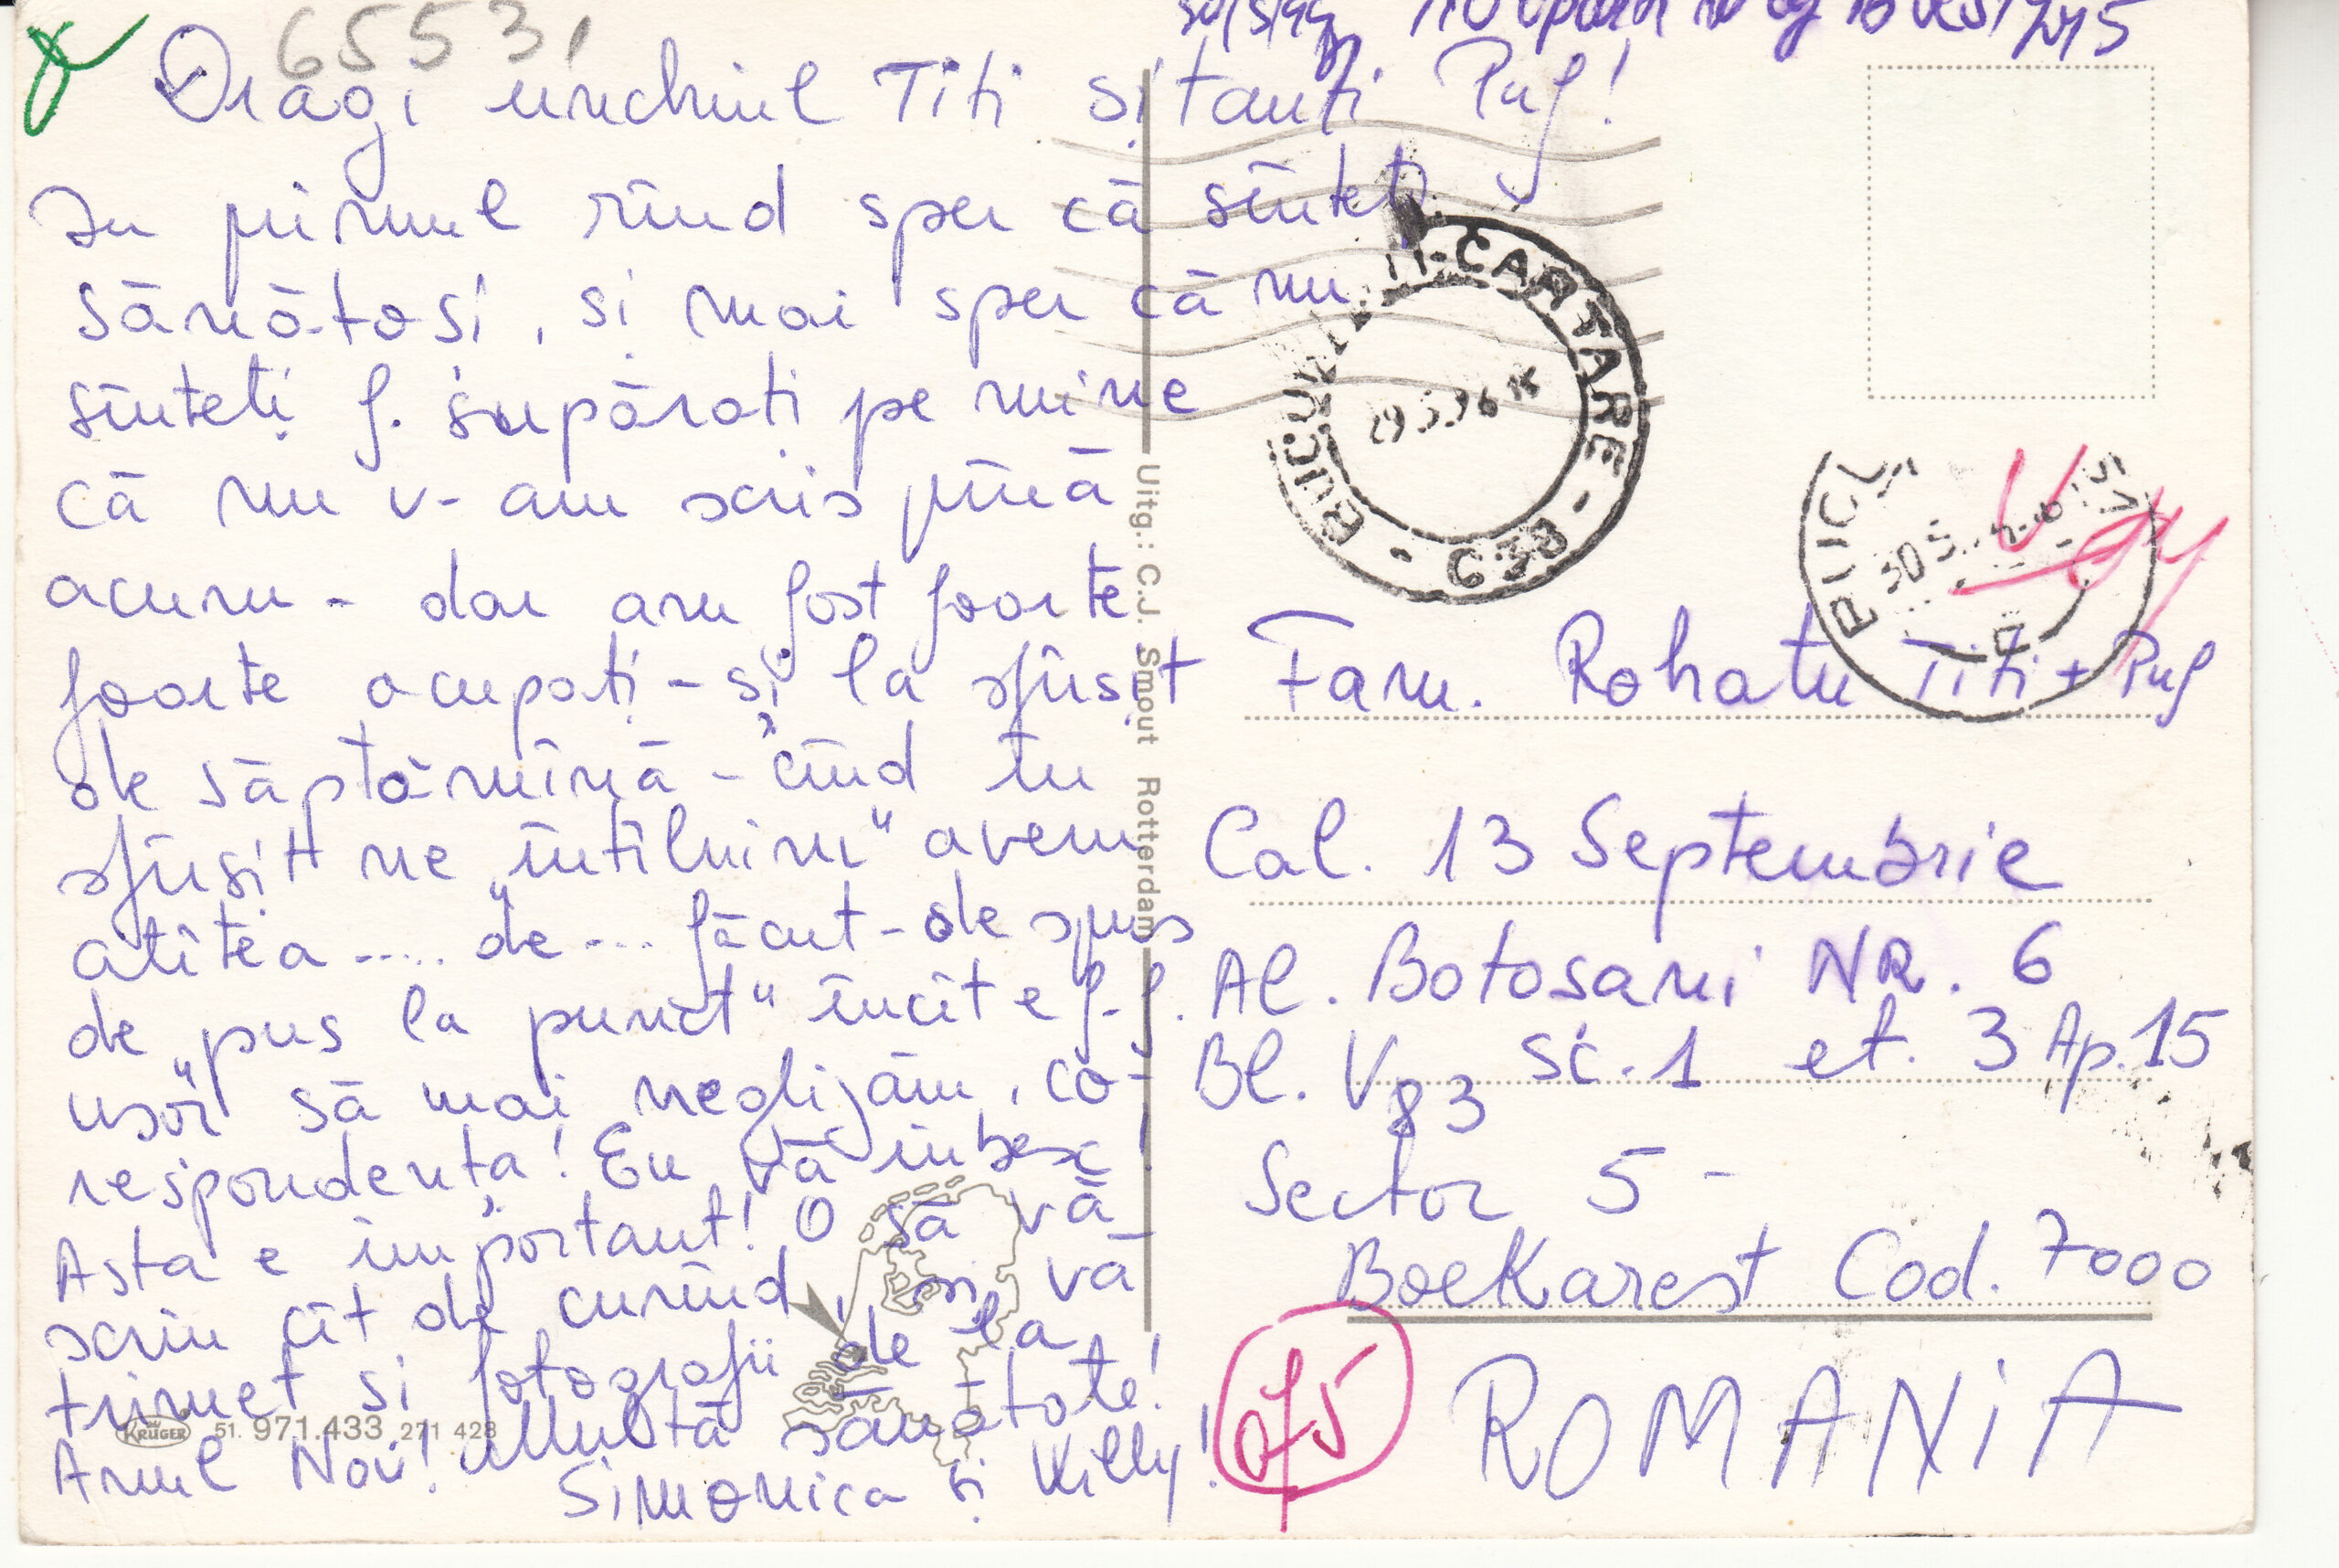 6553,
Dragi unchiul Titi și tanti Puf!
In primul rînd sper că sînteți
sănătosi, și mai sper că nu
sînteți f. supărați pe mine
că nu v-am scris pînă
acum - dar am fost foarte
foarte ocupați - și la sfîrsit
de săptămînă - "cînd în
sfîrșit ne întîlnim" avem
atîtea ..... "de ... făcut - de spus
de "pus la punct" încît e f. f.
usor" să mai neglijăm, co-
respondența! Eu vă iubesc!
Asta e important! O să vă
scriu cît de curînd, si vă
trimet si fotografii de la
Anul Nou! Multă sănătate!
Simonica și Willy!
Uitg.: C.J. Smout Rotterdam
KRÜGER 51. 971.433 271 428
BUCUREȘTI-CARTARE - C3R
BUCU
30 5
Fam. Rohatu Titi + Puf
Cal. 13 Septembrie
Al. Botosani NR. 6
Bl. V83 SC. 1 et. 3 Ap. 15
Sector 5 -
BoeKarest Cod. 7000
ROMANIA